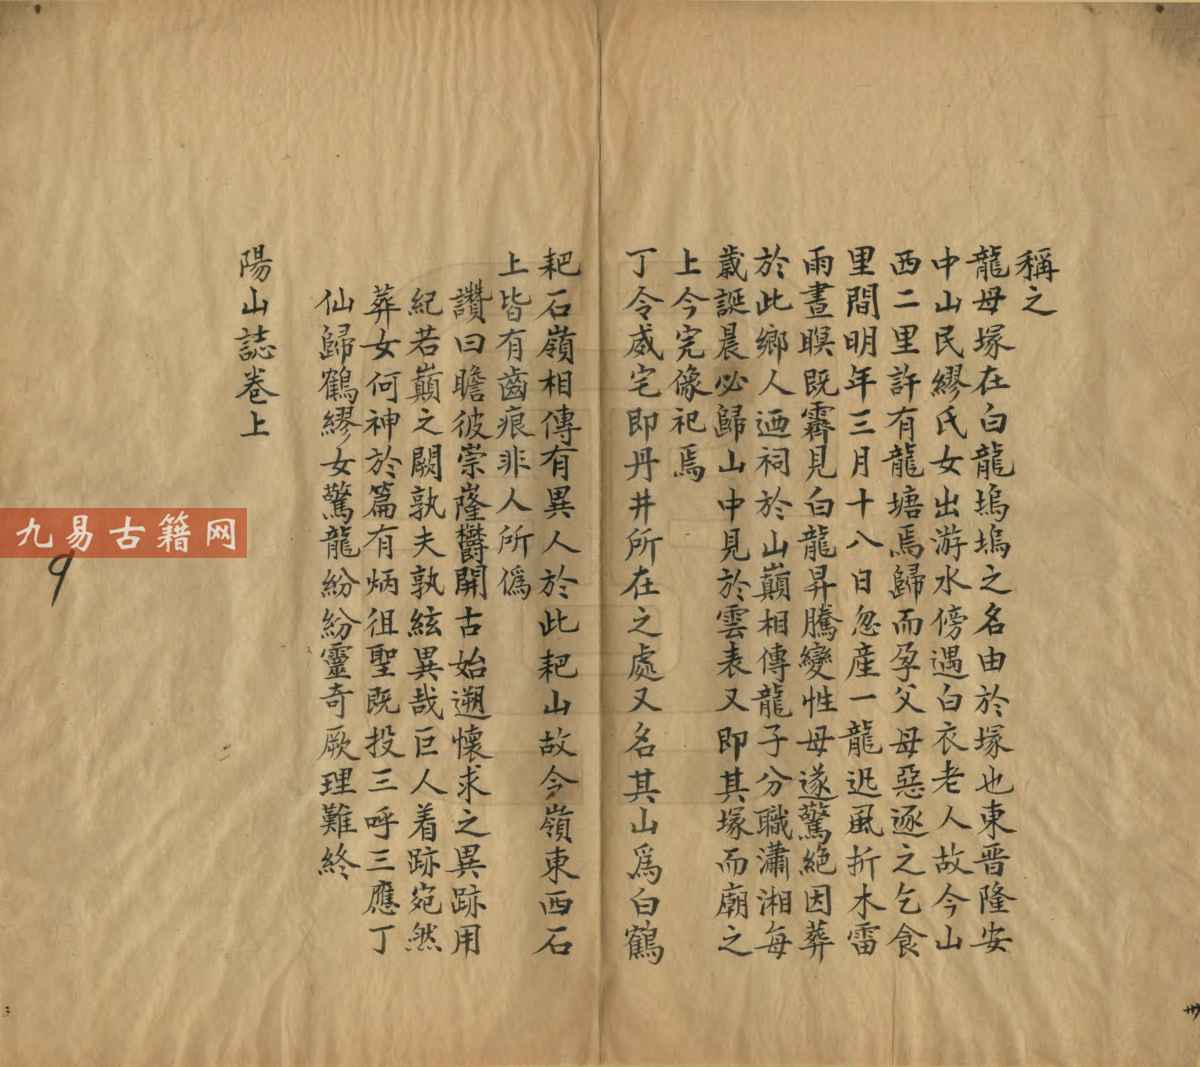 稱之
龍母塚在白龍塢塢之名由於塚也東晉隆安
中山民繆氏女出游水傍遇白衣老人故今山
西二里許有龍塘焉歸而孕父母惡逐之乞食
里間明年三月十八日忽產一龍迅風折木雷
雨晝暝既霽見白龍昇騰變性母遂驚絕因葬
於此鄉人迺祠於山巔相傳龍子分職瀟湘每
歲誕晨必歸山中見於雲表又即其塚而廟之
上今完像祀焉
丁令威宅即丹井所在之處又名其山為白鶴
耙石嶺相傳有異人於此耙山故今嶺東西石
上皆有齒痕非人所偽
讚曰瞻彼崇嶐欝開古始遡懷求之異跡用
紀若巔之闕孰夫孰絃異哉巨人着跡宛然
葬女何神於篇有炳徂聖既投三呼三應丁
仙歸鶴繆女驚龍紛紛靈奇厥理難終
陽山誌卷上
九易古籍网
9